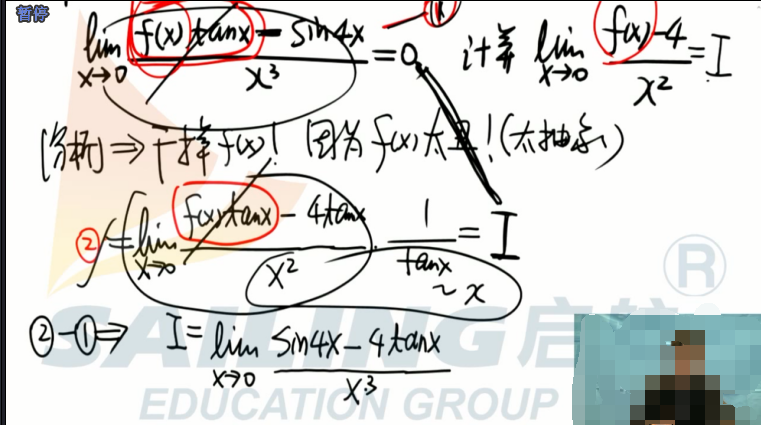 暂停
lim x→0 (f(x) tanx - sin4x)/x³ = 0 ① 计算 lim x→0 (f(x)-4)/x² = I
[分析] ⇒ 干掉 f(x)! 因为 f(x) 太丑!(太抽象)
② = lim x→0 (f(x)tanx - 4tanx)/x² · 1/tanx ~ x = I
② - ① ⇒ I = lim x→0 (sin4x - 4tanx)/x³
SAILING 启航 ®
EDUCATION GROUP